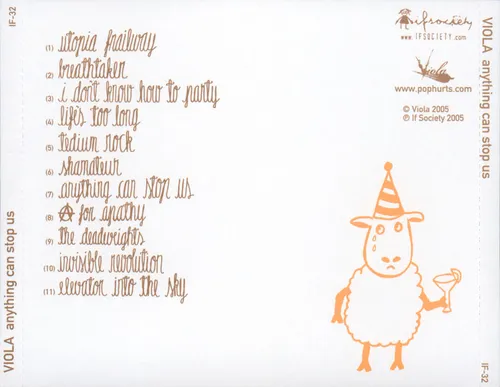 IF-32
VIOLA anything can stop us
(1) utopia frailway
(2) breathtaker
(3) i don't know how to party
(4) life's too long
(5) tedium rock
(6) shamateur
(7) anything can stop us
(8) Ⓐ for apathy
(9) the deadwrights
(10) invisible revolution
(11) elevator into the sky
ifsociety
www.IFSOCIETY.com
Viola
www.pophurts.com
© Viola 2005
℗ If Society 2005
VIOLA anything can stop us
IF-32